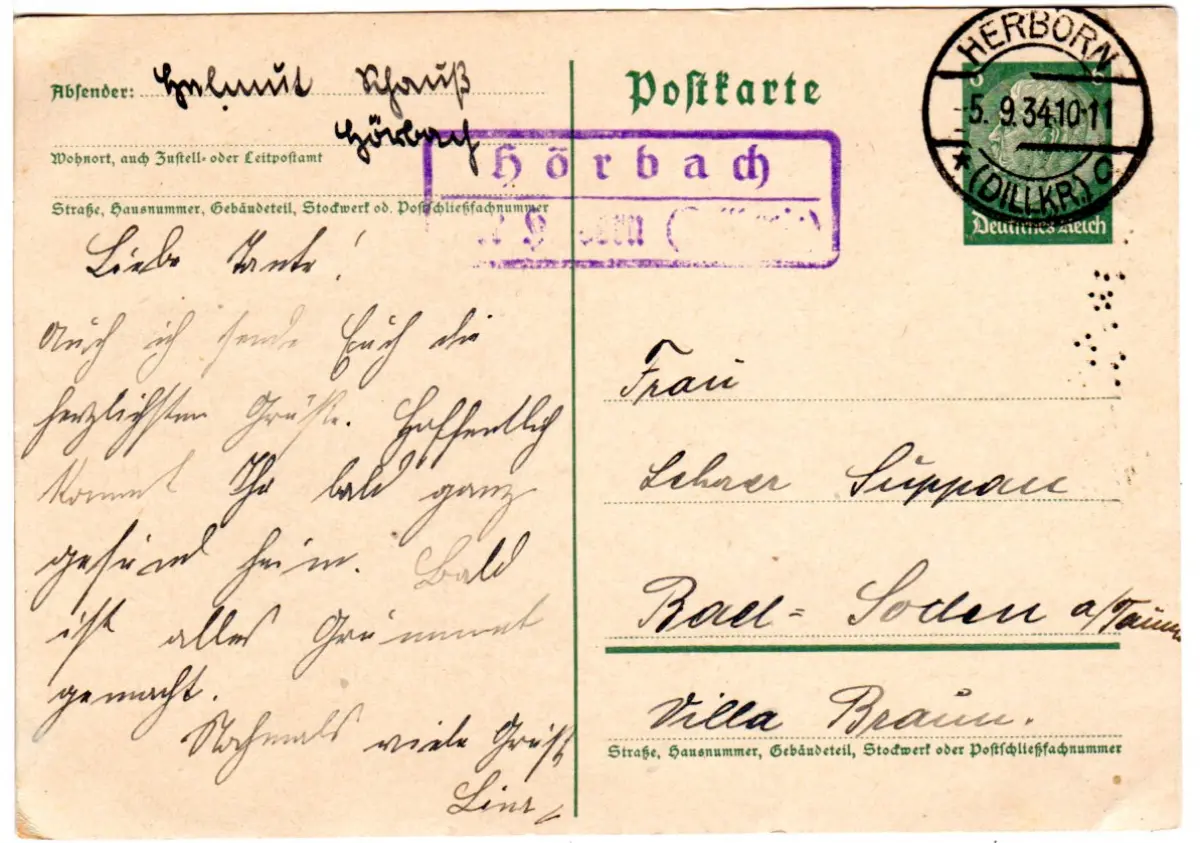 Absender: Helmut Schauß
Hörbach
Wohnort, auch Zustell- oder Leitpostamt
Straße, Hausnummer, Gebäudeteil, Stockwerk od. Postschließfachnummer
Hörbach
Postkarte
HERBORN
-5. 9.34.10-11
* (DILLKR.) C
Deutsches Reich
Liebe Tante!
Auch ich sende Euch die
herzlichsten Grüße. Hoffentlich
kommt Ihr bald ganz
gesund heim. Bald
ist alles Grummet
gemacht.
Nochmals viele Grüße
Frau
Lehrer Suppan
Bad-Soden a/Taunus
Villa Braun.
Straße, Hausnummer, Gebäudeteil, Stockwerk oder Postschließfachnummer